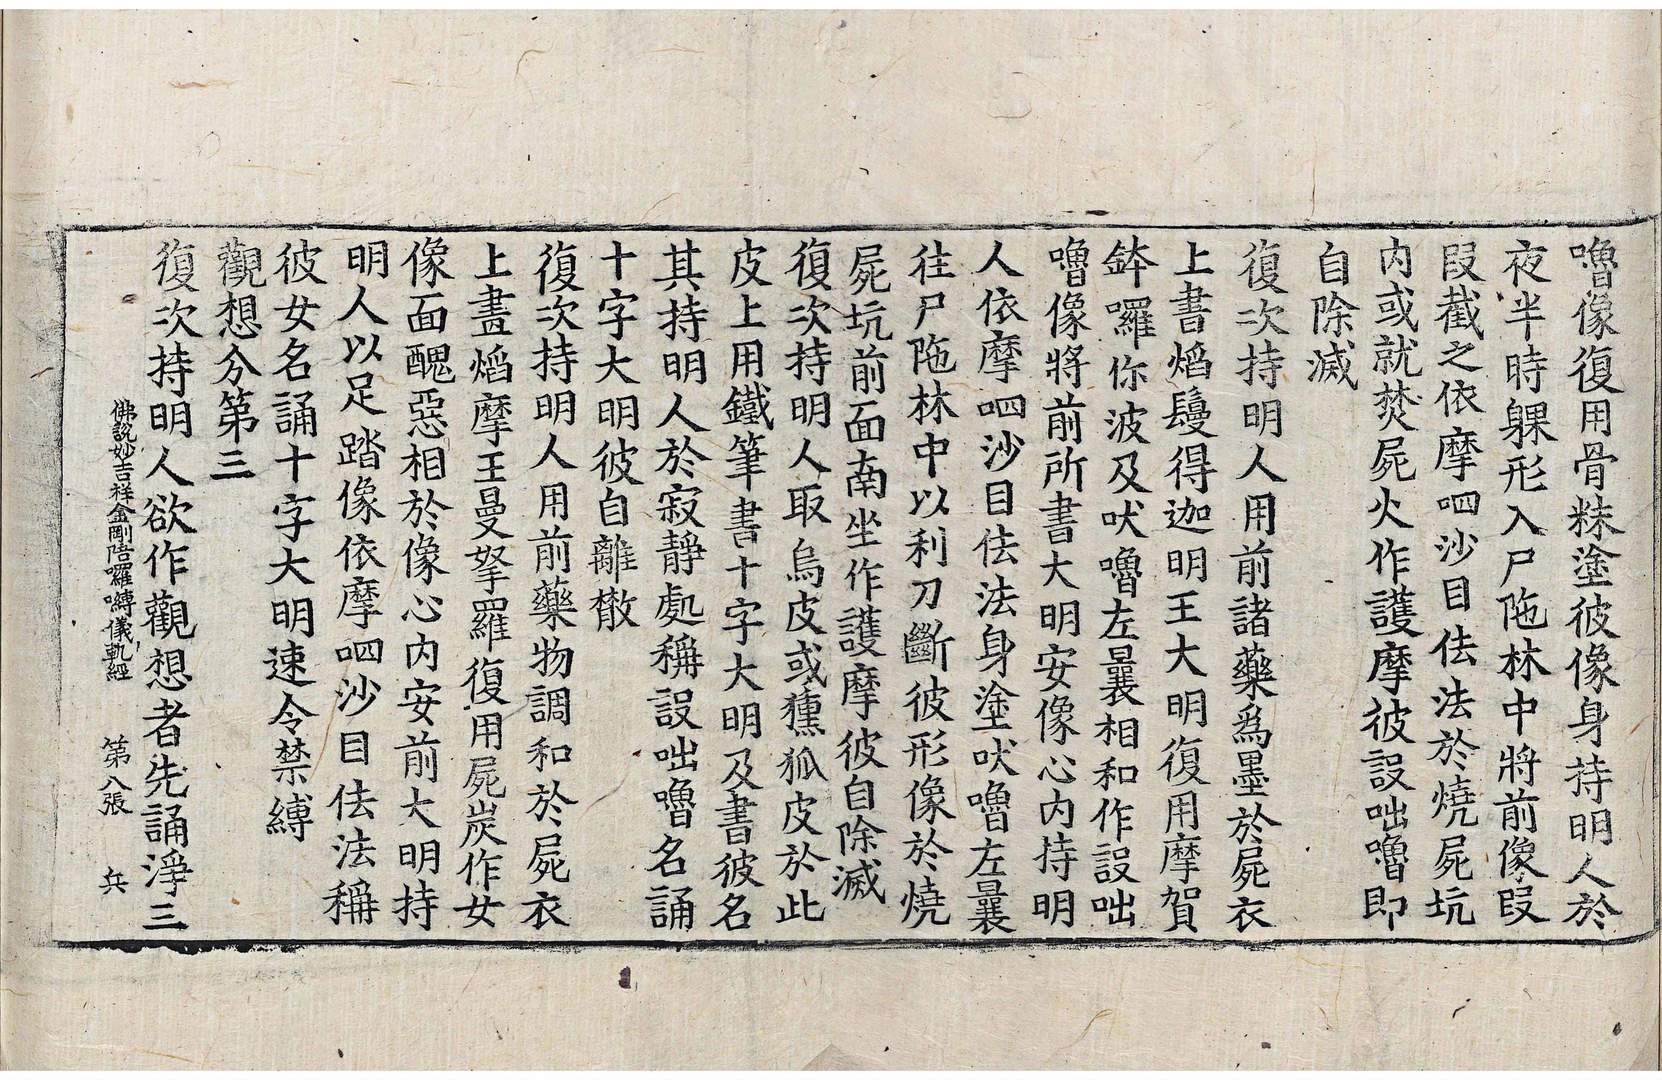 嚕像復用骨粖塗彼像身持明人於
夜半時躶形入尸陁林中將前像段
段截之依摩呬沙目佉法於燒屍坑
內或就焚屍火作護摩彼設咄嚕即
自除滅
復次持明人用前諸藥爲墨於屍衣
上書焰鬘得迦明王大明復用摩賀
鉢囉你波及吠嚕左曩相和作設咄
嚕像將前所書大明安像心內持明
人依摩呬沙目佉法身塗吠嚕左曩
往尸陁林中以利刀斷彼形像於燒
屍坑前面南坐作護摩彼自除滅
復次持明人取烏皮或獯狐皮於此
皮上用鐵筆書十字大明及書彼名
其持明人於寂靜處稱設咄嚕名誦
十字大明彼自離散
復次持明人用前藥物調和於屍衣
上畫焰摩王曼拏羅復用屍炭作女
像面醜惡相於像心內安前大明持
明人以足踏像依摩呬沙目佉法稱
彼女名誦十字大明速令禁縛
觀想分第三
復次持明人欲作觀想者先誦淨三
佛說妙吉祥金剛陪囉嚩儀軌經 第八張 兵